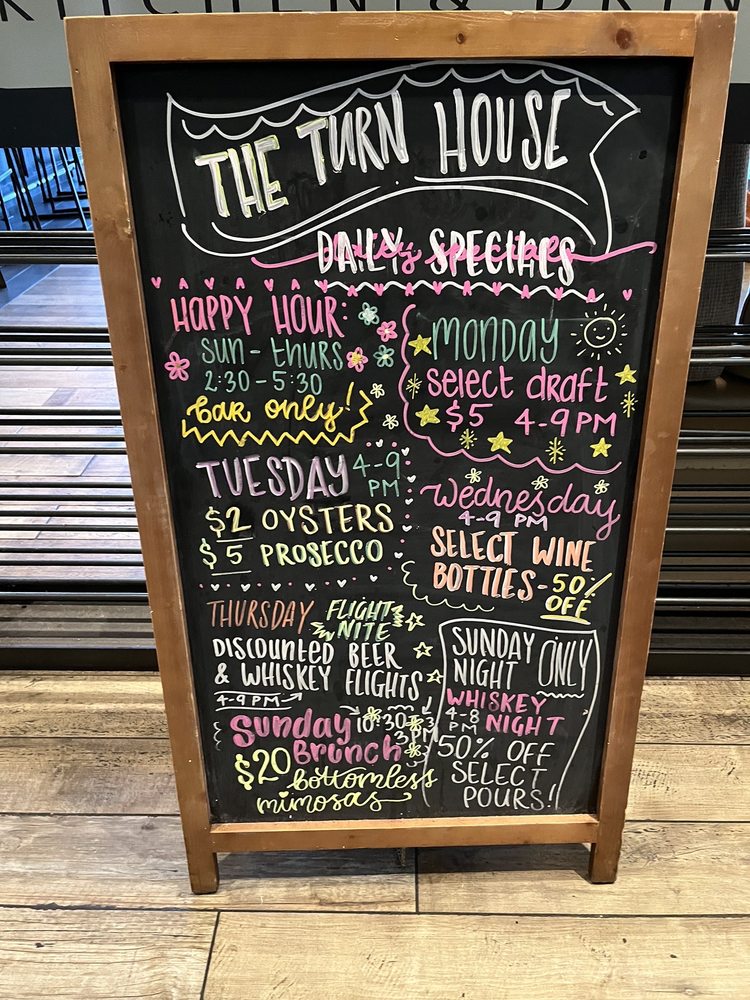 KITCHEN & DRIN
THE TURN HOUSE
DAILY SPECIALS
HAPPY HOUR:
SUN - THURS
2:30 - 5:30
bar only!
MONDAY
select draft
$5 4-9 PM
TUESDAY 4-9 PM
$2 OYSTERS
$5 PROSECCO
Wednesday
4-9 PM
SELECT WINE
BOTTLES - 50%
OFF
THURSDAY FLIGHT NITE
DISCOUNTED BEER
& WHISKEY FLIGHTS
4-9 PM
Sunday 10:30-3PM
Brunch
$20 bottomless
mimosas
SUNDAY
NIGHT ONLY
WHISKEY
4-8 PM NIGHT
50% OFF
SELECT
POURS!